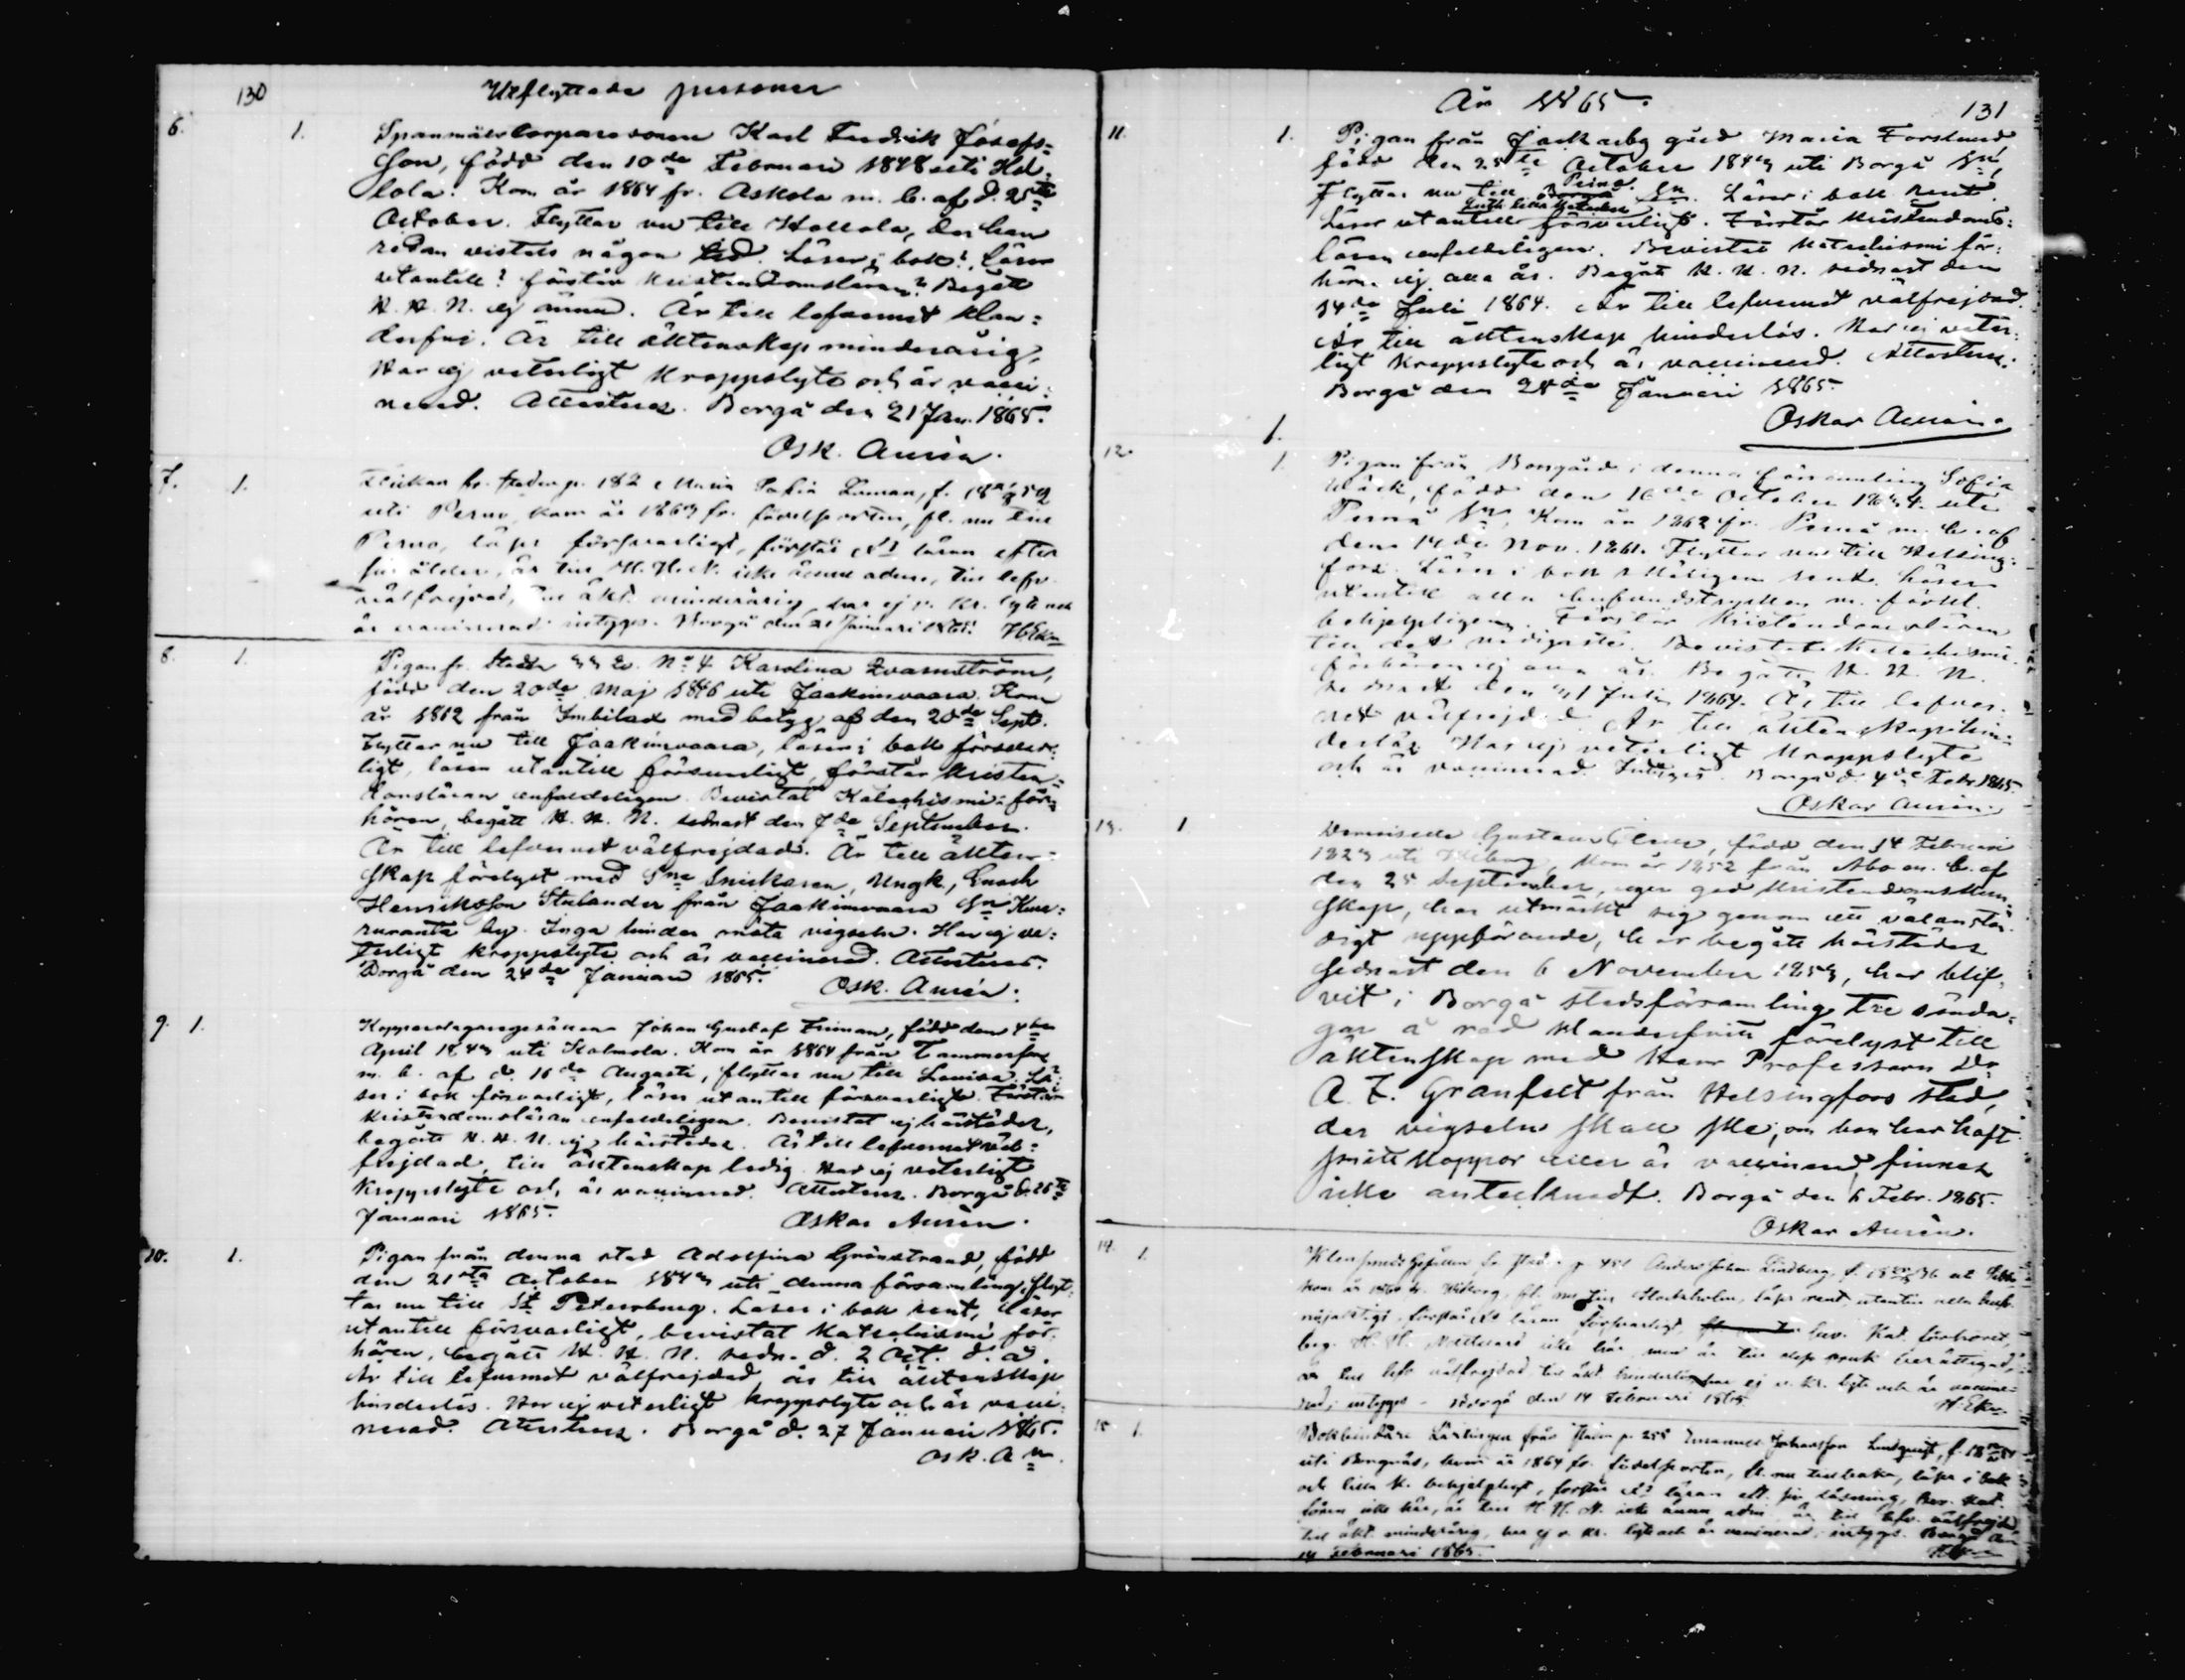 130
Utflyttade personer
6. 1. Spannmålstorparesonen Karl Fredrik Josefs=
son, född den 10de Februari 1848 uti Hol=
lola. Kom år 1864 fr. Askola m. b. af d. 25te
October. Flyttar nu till Hollola, der han
redan vistats någon tid. Läser i bok?, läser
utantill? förstår kristendomsläran? Begått
H. H. N. ej ännu. Är till lefvernet klan=
derfri. Är till äktenskap minderårig,
Har ej veterligt kroppslyte och är vacci=
nerad. Attesteras. Borgå den 21 Jan. 1865.
Osk. Aurén.
7. 1. Flickan fr. staden p. 182 Maria Sofia Luman, f.
uti Perno, kom år 1863 fr. födelseorten, fl. nu till
Perno, läser försvarligt, förstår läran efter
sin ålder, är till H. H. N. icke ännu adm., till lefv.
välfrejdad, till äkt. minderårig, har ej v. kr. lyte och
är vaccinerad intygas. Borgå den 21 Januari 1865. H Ekm
8. 1. Pigan fr. Staden No 4 Karolina Qvarnström,
född den 20de Maj 1846 uti Jaakimvaara. Kom
år 1862 från Imbilax med betyg af den 20de Sept.
Flyttar nu till Jaakimvaara, läser i bok försvar=
ligt, läser utantill försvarligt, förstår kristen=
domsläran enfaldeligen. Bevistat Katechismi=för=
hören, begått H. H. N. sednast den 7de September.
Är till lefvernet välfrejdad. Är till äkten=
skap förelyst med Sne Snickaren, Ungk., Enoch
Henriksson Stelander från Jaakimvaara Sn Kum=
puranta by. Inga hinder möta vigseln. Har ej ve=
terligt kroppslyte och är vaccinerad. Attesteras.
Borgå den 24de Januari 1865. Osk. Aurén.
9. 1. Kopparslagaregesällen Johan Gustaf Friman, född den 4de
April 1843 uti Kalvola. Kom år 1864 från Tammerfors
m. b. af d. 16de Augusti, flyttar nu till Lovisa. Lä=
ser i bok försvarligt, läser utantill försvarligt. Förstår
kristendomsläran enfaldeligen. Bevistat ej härstädes,
begått H. H. N. ej härstädes. Är till lefvernet väl=
frejdad, till äktenskap ledig. Har ej veterligt
kroppslyte och är vaccinerad. Attesteras. Borgå d. 26te
Januari 1865. Oskar Aurén.
10. 1. Pigan från denna stad Adolfina Grönstrand, född
den 21sta October 1843 uti denna församling, flyt=
tar nu till St Petersburg. Läser i bok rent, läser
utantill försvarligt, bevistat Katechismi för=
hören, begått H. H. N. sedn. d. 2 Oct. d. å.
Är till lefvernet välfrejdad, är till äktenskap
hinderlös. Har ej veterligt kroppslyte och är vacci=
nerad. Attesteras. Borgå d. 27 Januari 1865.
Osk. A n.
År 1865.
131
11. 1. Pigan från Jackarby gård Maria Forslund
född den 25te October 1843 uti Borgå Sn,
Flyttar nu till Perno Sn. Läser i bok rent.
Läser utantill försvarligt. Förstår kristendoms=
läran enfaldeligen. Bevistat Katechismi för=
hören ej alla år. Begått H. H. N. sednast den
14de Juli 1864. Är till lefvernet välfrejdad.
Är till äktenskap hinderlös. Har ej veter=
ligt kroppslyte och är vaccinerad. Attesteras.
Borgå den 28de Januari 1865.
Oskar Aurén.
1.
12. 1. Pigan från Borgård i denna församling Sofia
född den 16de October 1834 uti
Pernå Sn, Kom år 1862 fr. Pernå m. b. af
den 14de Nov. 1861. Flyttar nu till Helsing=
fors. Läser i bok skäligen rent. Läser
utantill alla hufvudstycken m. förkl.
behjelpligen. Förstår Kristendomsläran
till det nödigaste. Bevistat Katechismi
förhören ej alla år. Begått H. H. N.
sednast den 31 Juli 1864. Är till lefver=
net välfrejdad. Är till äktenskap hin=
derlös. Har ej veterligt kroppslyte
och är vaccinerad. Intygas. Borgå d. 4de Febr 1865.
Oskar Aurén.
13. 1. Demoiselle Gustava född den 14 Februari
1823 uti Wiborg, Kom år 1852 från Åbo m. b. af
den 25 September, eger god kristendomskun=
skap, har utmärkt sig genom ett välanstän=
digt uppförande, har begått härstädes
sednast den 6 November 1853, har blif=
vit i Borgå stadsförsamling tre sönda=
gar å rad klanderfritt förelyst till
äktenskap med Herr Professorn Dr
A. F. Granfelt från Helsingfors stad,
der vigseln skall ske; om hon har haft
smittkoppor eller är vaccinerad, finnes
icke antecknadt. Borgå den 6 Febr. 1865.
Oskar Aurén.
14. 1. Klensmedsgesällen fr. staden p. 451 Anders Johan Lindberg, f.
kom år 1860 fr. Wiborg, fl. nu till Stockholm, läser rent, utantill alla hufv.
nöjaktigt, förstår läran försvarligt, bev. Kat. förhöret,
beg. H. H. Nattvard icke här, men är till dess bruk berättigad,
är till lefv. välfrejdad, till äkt. hinderlös, har ej v. kr. lyte och är vaccine=
rad; intygas. Borgå den 14 Februari 1865.
H. Ekm
15. 1. Bokbindare Lärlingen från staden p. 255 Emanuel Johansson Lindqvist, f.
uti Borgnäs, kom år 1864 fr. födelseorten, fl. nu tillbaka, läser i bok
och lilla k. behjelpligt, förstår läran eft. sin läsning, bev. kat.
hören icke här, är till H. H. N. icke ännu adm., är till lefv. välfrejd.
till äkt. minderårig, har ej v. kr. lyte och är vaccinerad, intygas. Borgå den
14 Februari 1865.